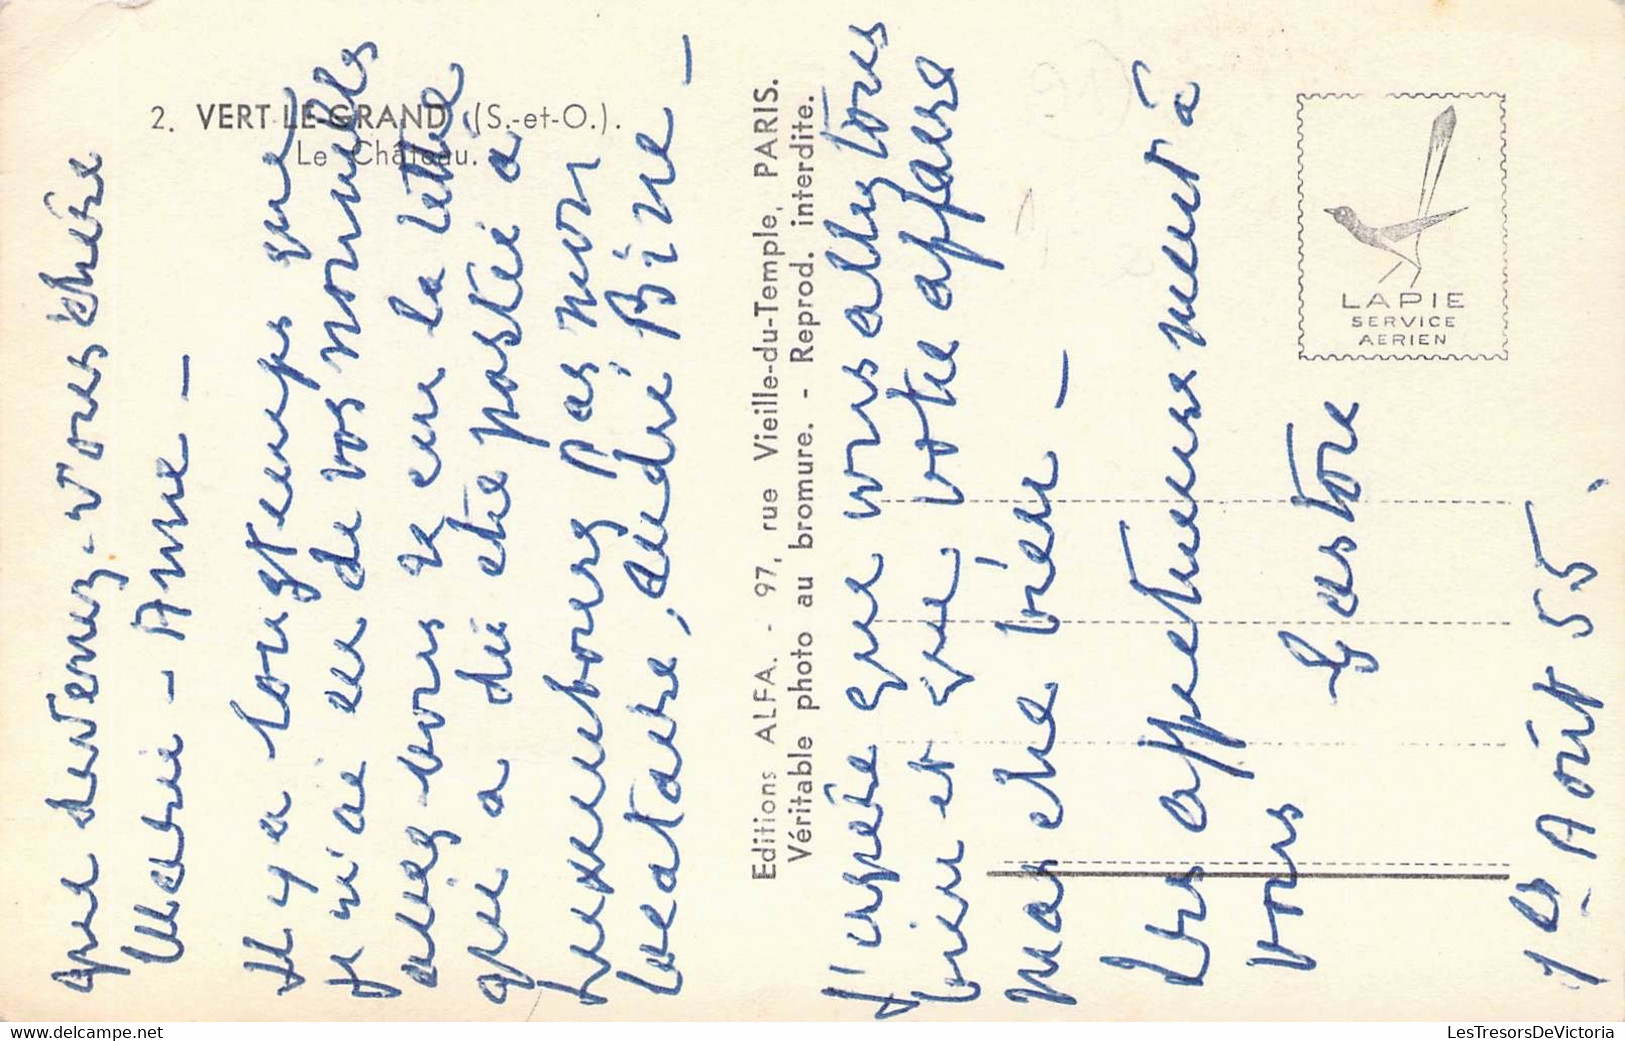 2. VERT LE GRAND (S.-et-O.).
Le Château.
Editions ALFA. - 97, rue Vieille-du-Temple, PARIS.
Véritable photo au bromure. - Reprod. interdite.
LAPIE
SERVICE
AERIEN
que devenez-vous chère
Marie-Anne -
Il y a longtemps que
je n'ai eu de vos nouvelles
avez-vous reçu la lettre
qui a dû être postée à
Luxembourg par mon
locataire, André Bine -
J'espère que vous allez tous
bien et que votre affaire
marche bien -
Très affectueusement à
vous
Gastone
1er Août 55.
LesTresorsDeVictoria
www.delcampe.net